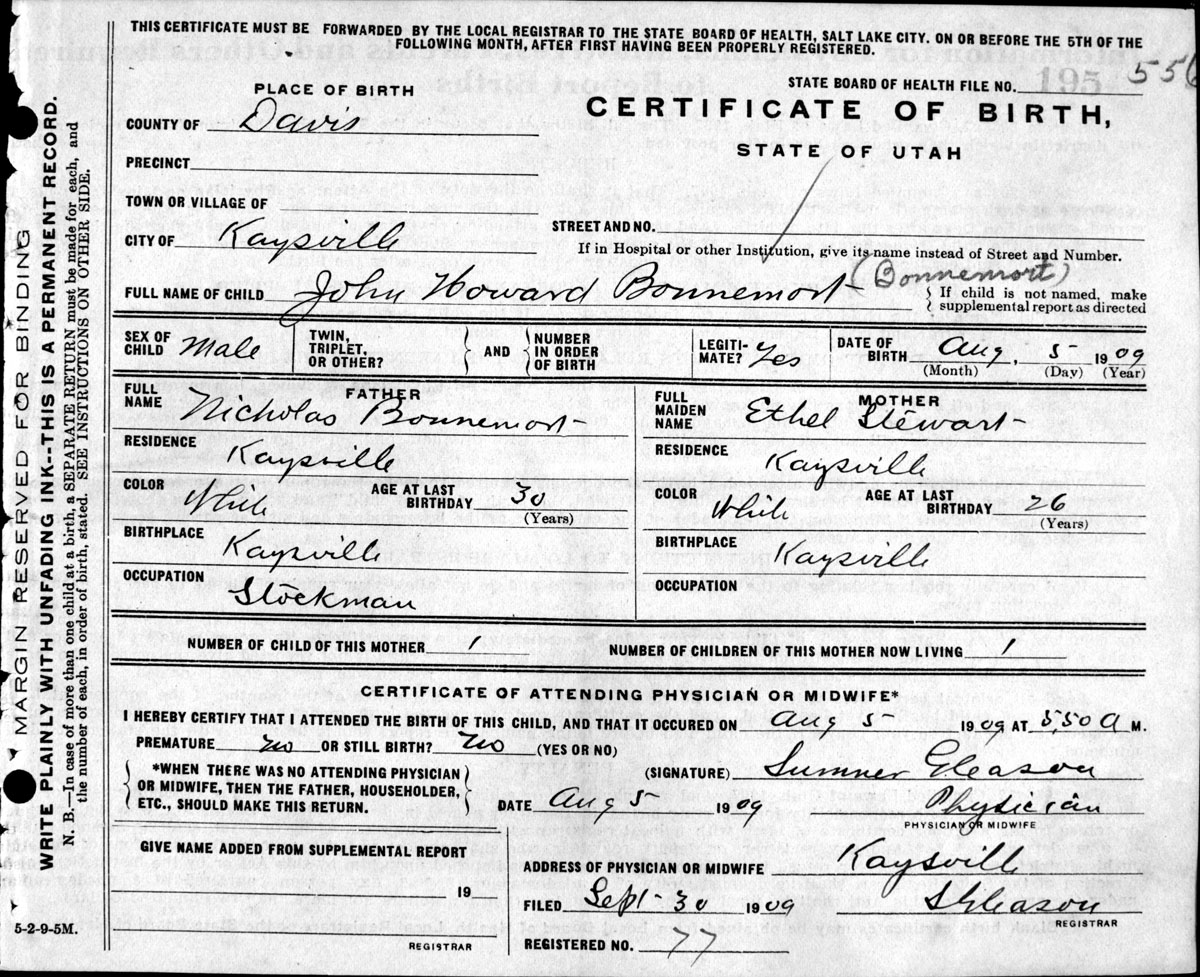 THIS CERTIFICATE MUST BE FORWARDED BY THE LOCAL REGISTRAR TO THE STATE BOARD OF HEALTH, SALT LAKE CITY. ON OR BEFORE THE 5TH OF THE
FOLLOWING MONTH, AFTER FIRST HAVING BEEN PROPERLY REGISTERED.
MARGIN RESERVED FOR BINDING
WRITE PLAINLY WITH UNFADING INK--THIS IS A PERMANENT RECORD.
N. B.—In case of more than one child at a birth, a SEPARATE RETURN must be made for each, and
the number of each, in order of birth, stated. SEE INSTRUCTIONS ON OTHER SIDE.
STATE BOARD OF HEALTH FILE NO. 195 556
PLACE OF BIRTH
CERTIFICATE OF BIRTH,
COUNTY OF Davis
STATE OF UTAH
PRECINCT
TOWN OR VILLAGE OF
STREET AND NO.
CITY OF Kaysville
If in Hospital or other Institution, give its name instead of Street and Number.
FULL NAME OF CHILD John Howard Bonnemort (Bonnemort)
If child is not named, make
supplemental report as directed
SEX OF CHILD Male TWIN, TRIPLET, OR OTHER? AND NUMBER IN ORDER OF BIRTH LEGITI-MATE? Yes DATE OF BIRTH Aug, 5 1909
(Month) (Day) (Year)
FATHER
FULL NAME Nicholas Bonnemort
RESIDENCE
Kaysville
COLOR White AGE AT LAST BIRTHDAY 30
(Years)
BIRTHPLACE
Kaysville
OCCUPATION
Stockman
MOTHER
FULL MAIDEN NAME Ethel Stewart
RESIDENCE
Kaysville
COLOR White AGE AT LAST BIRTHDAY 26
(Years)
BIRTHPLACE
Kaysville
OCCUPATION
NUMBER OF CHILD OF THIS MOTHER 1 NUMBER OF CHILDREN OF THIS MOTHER NOW LIVING 1
CERTIFICATE OF ATTENDING PHYSICIAN OR MIDWIFE*
I HEREBY CERTIFY THAT I ATTENDED THE BIRTH OF THIS CHILD, AND THAT IT OCCURED ON Aug 5 1909 AT 5,50 A M.
PREMATURE no OR STILL BIRTH? no (YES OR NO)
*WHEN THERE WAS NO ATTENDING PHYSICIAN
OR MIDWIFE, THEN THE FATHER, HOUSEHOLDER,
ETC., SHOULD MAKE THIS RETURN.
(SIGNATURE) Sumner Gleason
DATE Aug 5 1909 Physician
PHYSICIAN OR MIDWIFE
GIVE NAME ADDED FROM SUPPLEMENTAL REPORT
19
REGISTRAR
ADDRESS OF PHYSICIAN OR MIDWIFE Kaysville
FILED Sept 30 1909 S Gleason
REGISTRAR
REGISTERED NO. 77
5-2-9-5M.